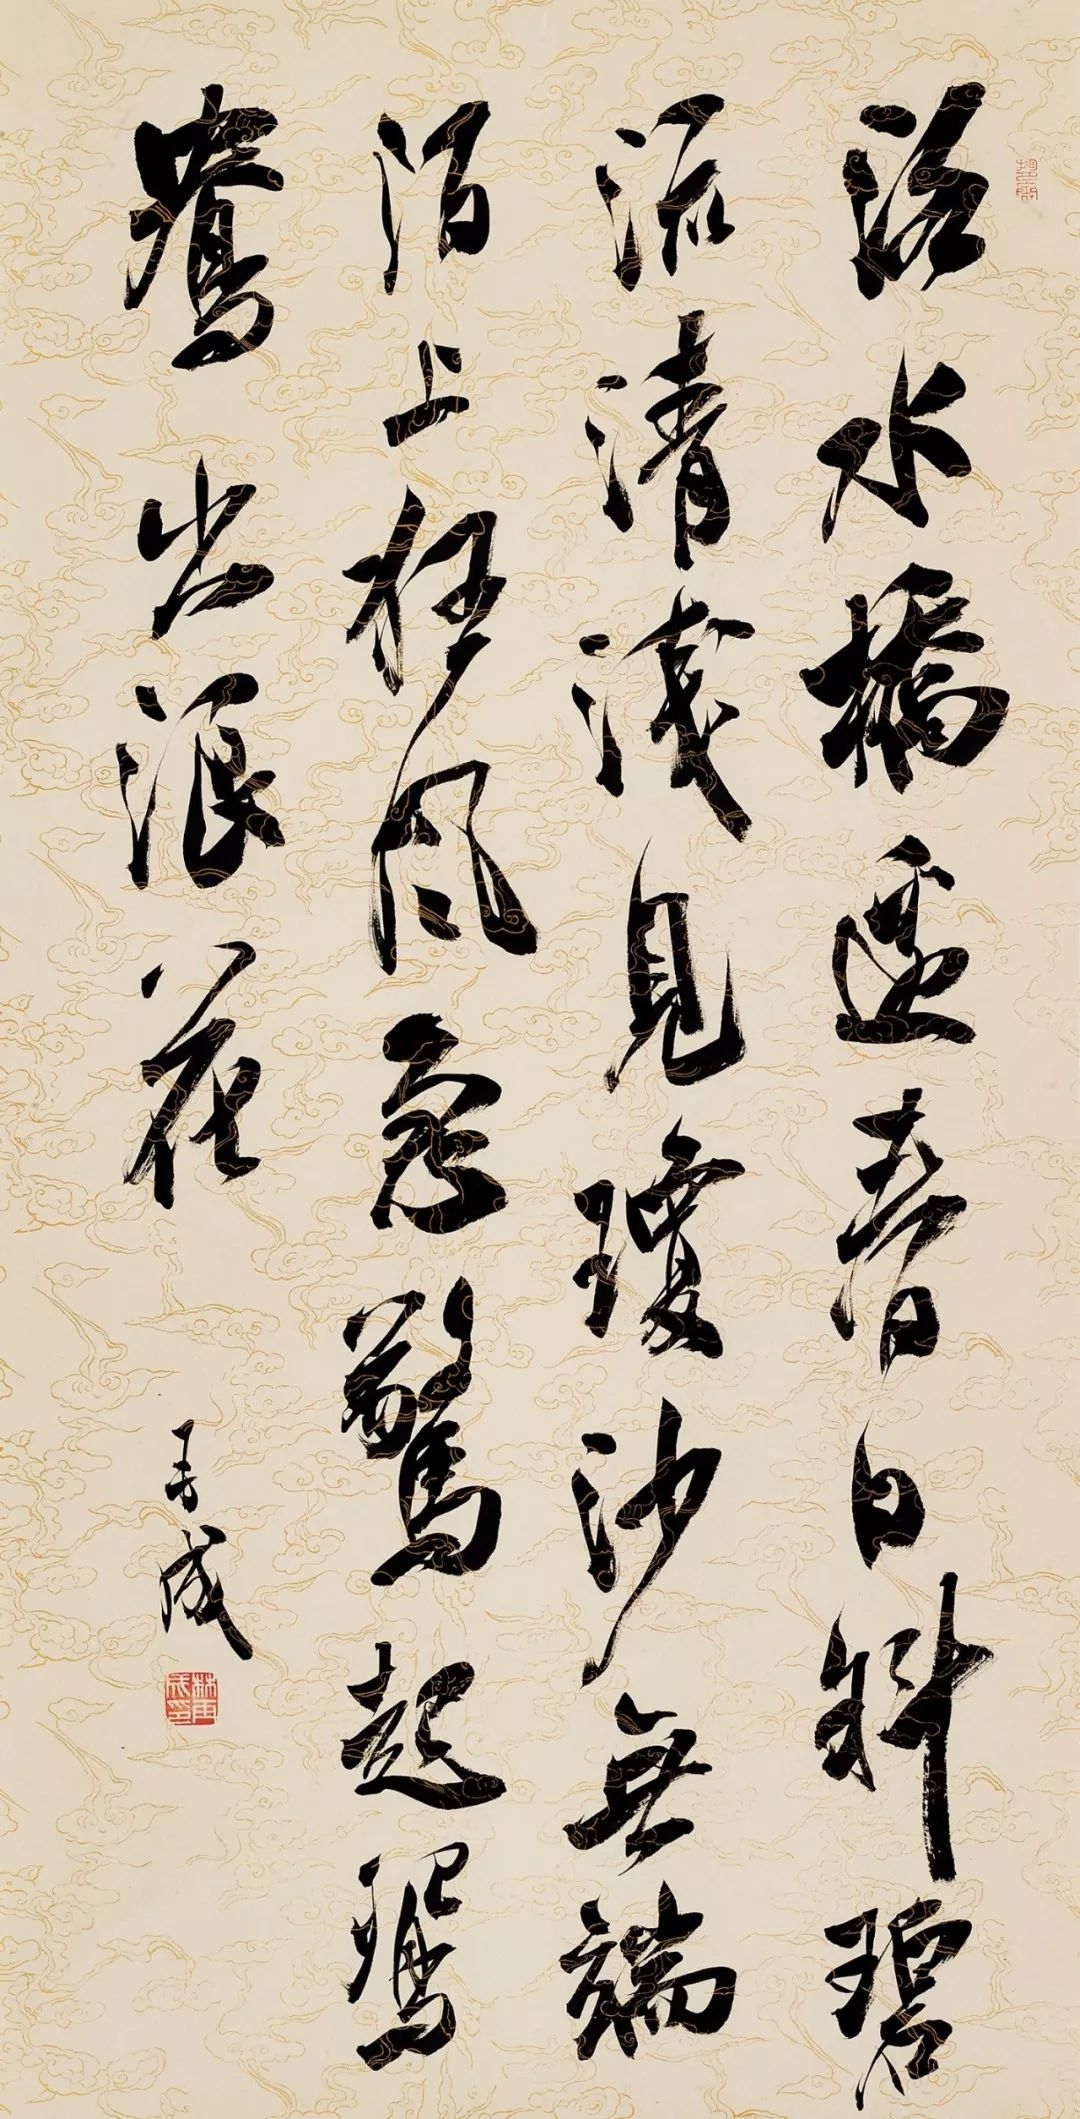 洛水橋邊春日斜碧
流清淺見瓊沙無端
陌上狂風急驚起鴛
鴦出浪花
再成
林再成印